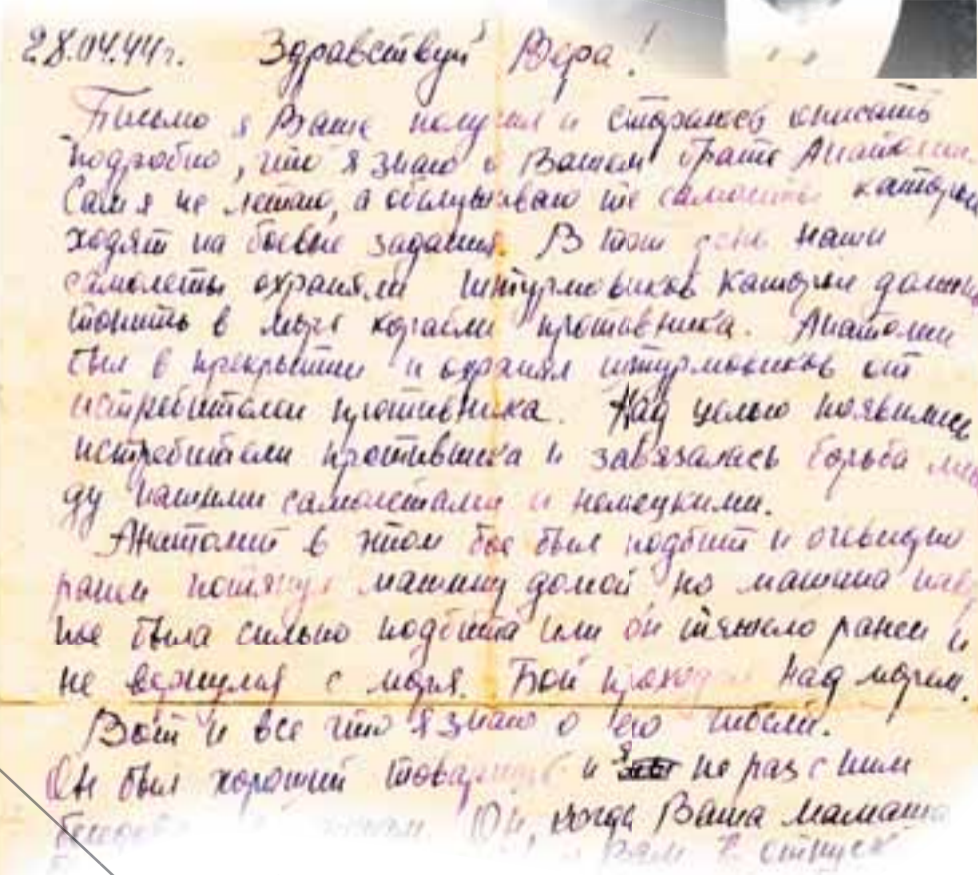 28.04.44г. Здравствуй Вера!
Письмо я Ваше получил и стараюсь описать
подробно, что я знаю о Вашем брате Анатолии.
Сам я не летаю, а обслуживаю те самолеты
ходят на боевые задания. В тот день наши
самолеты охраняли штурмовиков каторые
топить в море корабли противника. Анатолий
был в прекрытии и охранял штурмовиков от
истребителей противника. Над целью появились
истребители противника и завязалась борьба
ду нашими самолетами и немецкими.
Анатолий в этом бое был подбит и очевидно
ранен потянул машину домой но машина
ное была сильно подбита или он тяжело ранен и
не вернулся с моря. Бой проходил над морем.
Вот и все что я знаю о его гибели.
Он был хороший товарищ и я не раз с ним
Он, когда Ваша мамаша
Вам в отпуск